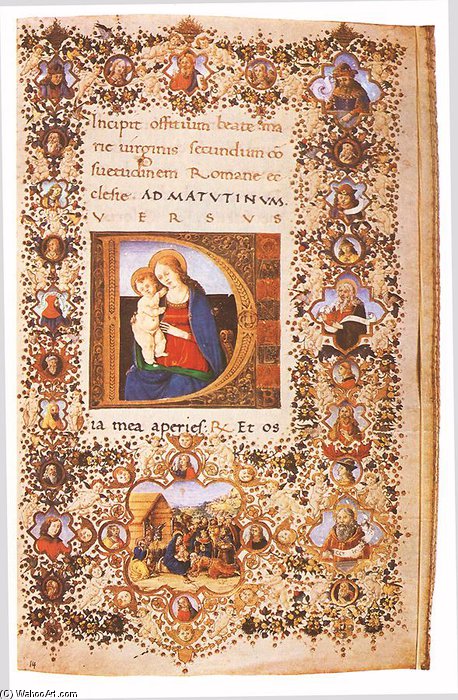 Incipit offitium beate ma
rie virginis secundum cō
suetudinem Romane ec
clesie. AD MATUTINUM.
VERSUS
D
ia mea aperies. R. Et os
14
(C) WahooArt.com